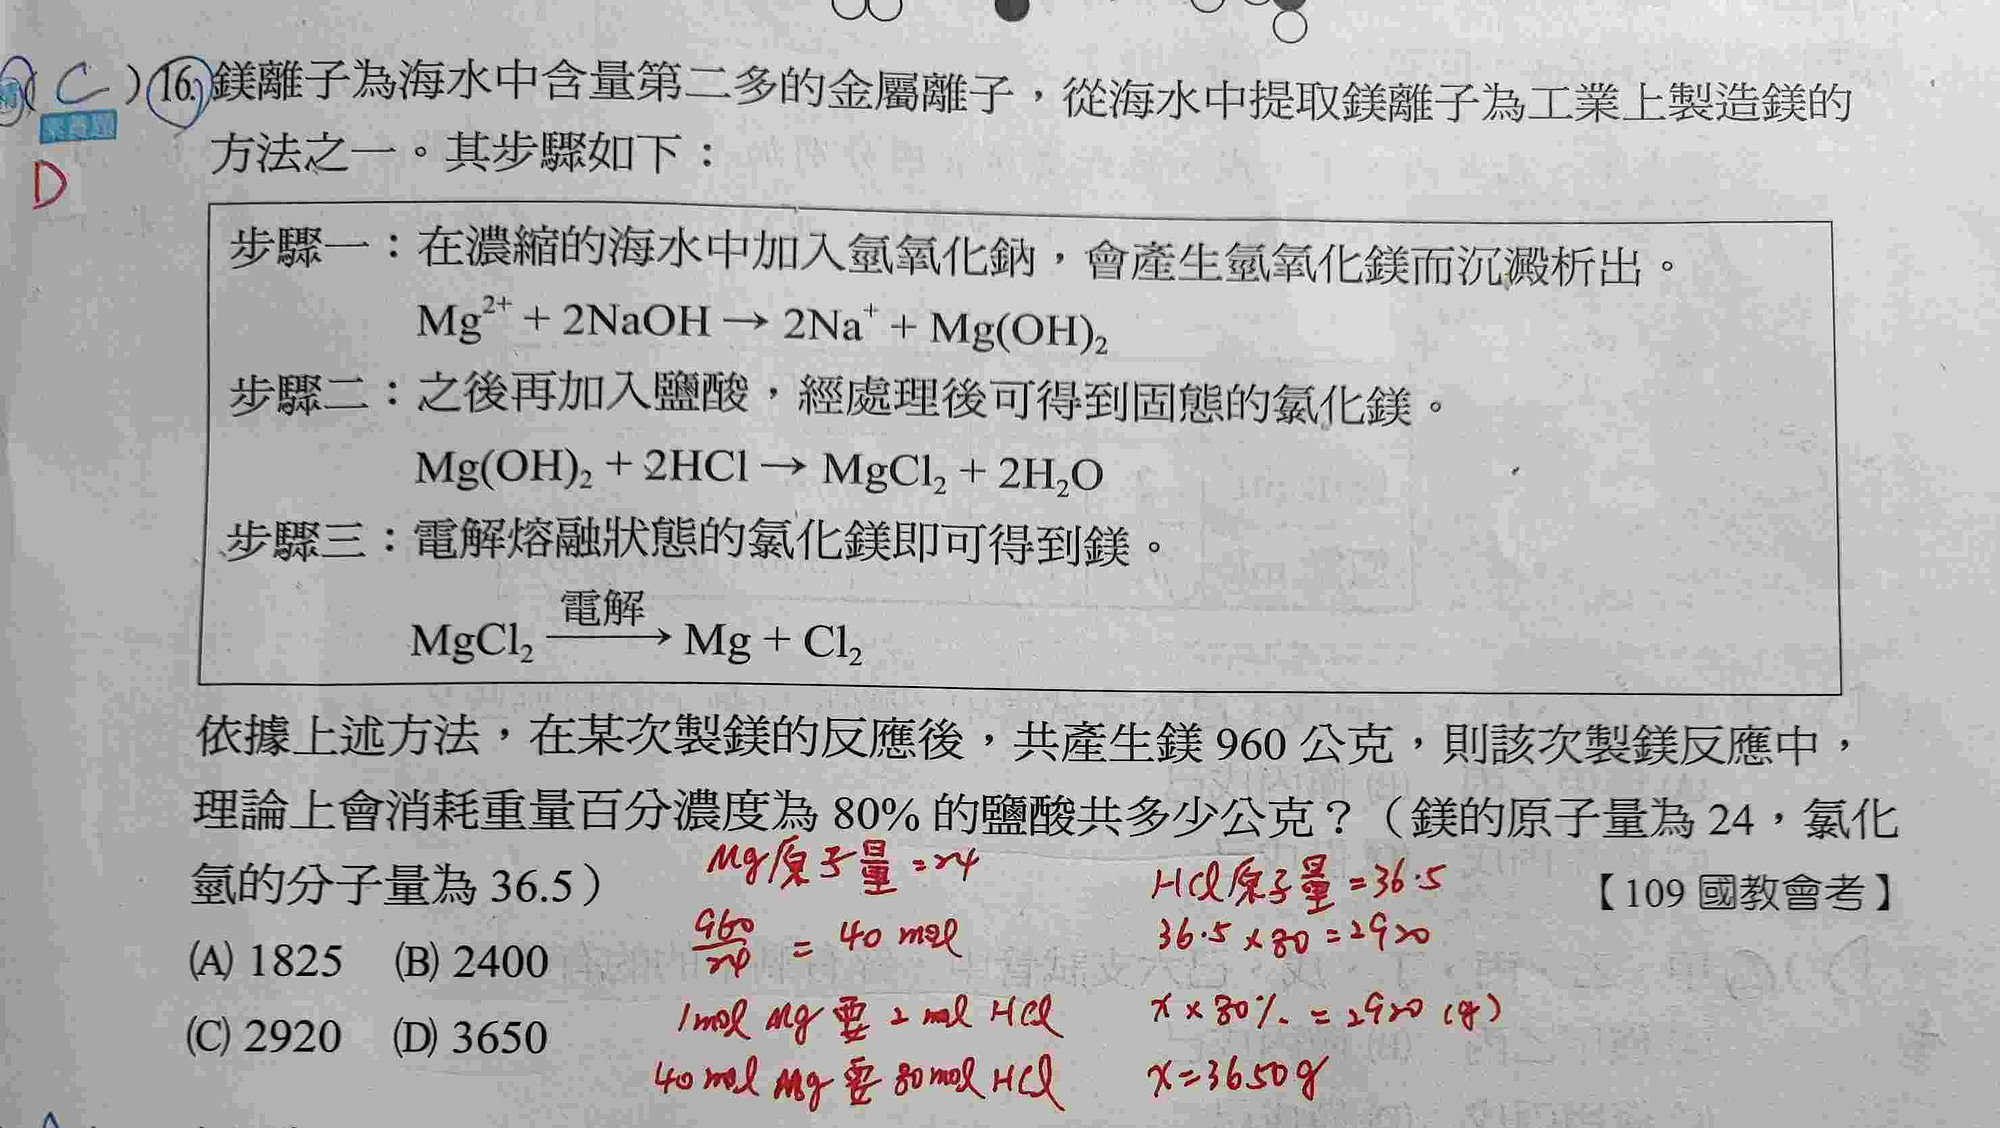 ( C ) 16. 鎂離子為海水中含量第二多的金屬離子，從海水中提取鎂離子為工業上製造鎂的
D
方法之一。其步驟如下：
步驟一：在濃縮的海水中加入氫氧化鈉，會產生氫氧化鎂而沉澱析出。
Mg²⁺ + 2NaOH → 2Na⁺ + Mg(OH)₂
步驟二：之後再加入鹽酸，經處理後可得到固態的氯化鎂。
Mg(OH)₂ + 2HCl → MgCl₂ + 2H₂O
步驟三：電解熔融狀態的氯化鎂即可得到鎂。
電解
MgCl₂ → Mg + Cl₂
依據上述方法，在某次製鎂的反應後，共產生鎂 960 公克，則該次製鎂反應中，
理論上會消耗重量百分濃度為 80% 的鹽酸共多少公克？（鎂的原子量為 24，氯化
氫的分子量為 36.5）
【109 國教會考】
(A) 1825 (B) 2400
(C) 2920 (D) 3650
Mg原子量=24
960/24 = 40 mol
1mol Mg 要 2 mol HCl
40 mol Mg 要 80 mol HCl
HCl原子量=36.5
36.5 × 80 = 2920
x × 80% = 2920 (g)
x=3650g